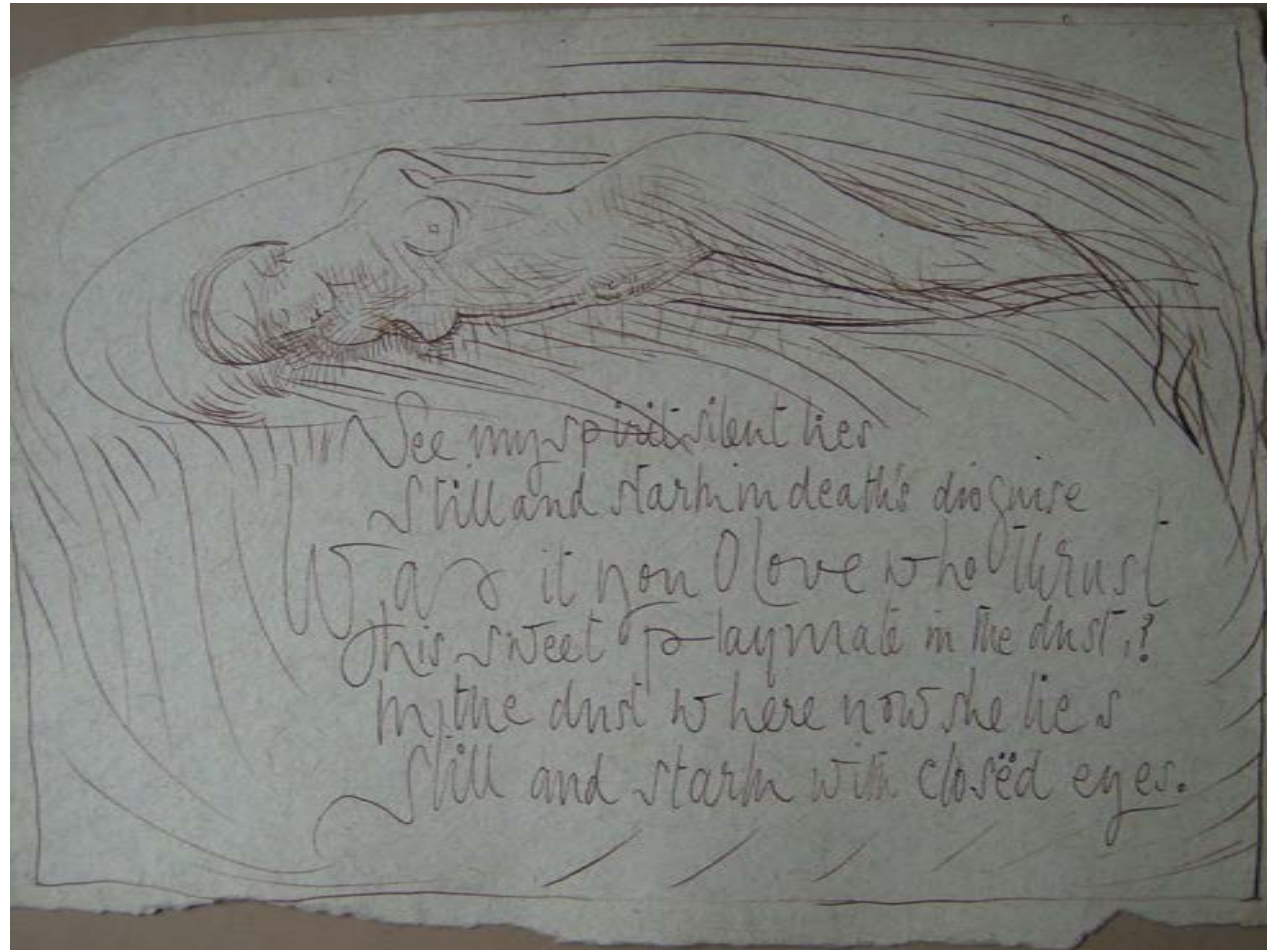 See my spirit silent lies
Still and stark in death's disguise
Was it you O love who thrust
This sweet playmate in the dust,?
In the dust where now she lies
Still and stark with closëd eyes.